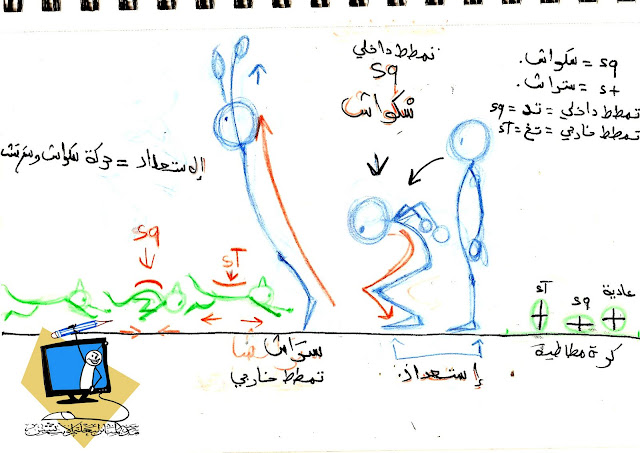 تمطط داخلي
sq
سكواش
sq = سكواش.
st = ستراتش.
تمطط داخلي = تد = sq
تمطط خارجي = تخ = ST
الإستعداد = حركة سكواش وستراتش
sq
ST
عادية
sq
ST
كرة مطاطية
إستعداد.
ستراتش
تمطط خارجي